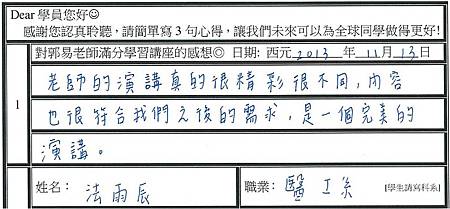 Dear 學員您好☺
感謝您認真聆聽，請簡單寫3句心得，讓我們未來可以為全球同學做得更好!
對郭易老師滿分學習講座的感想◎ 日期: 西元 2013 年 11 月 13 日
1
老師的演講真的很精彩很不同，內容
也很符合我們之後的需求，是一個完美的
演講。
姓名: 法雨辰
職業: 醫工系 [學生請寫科系]